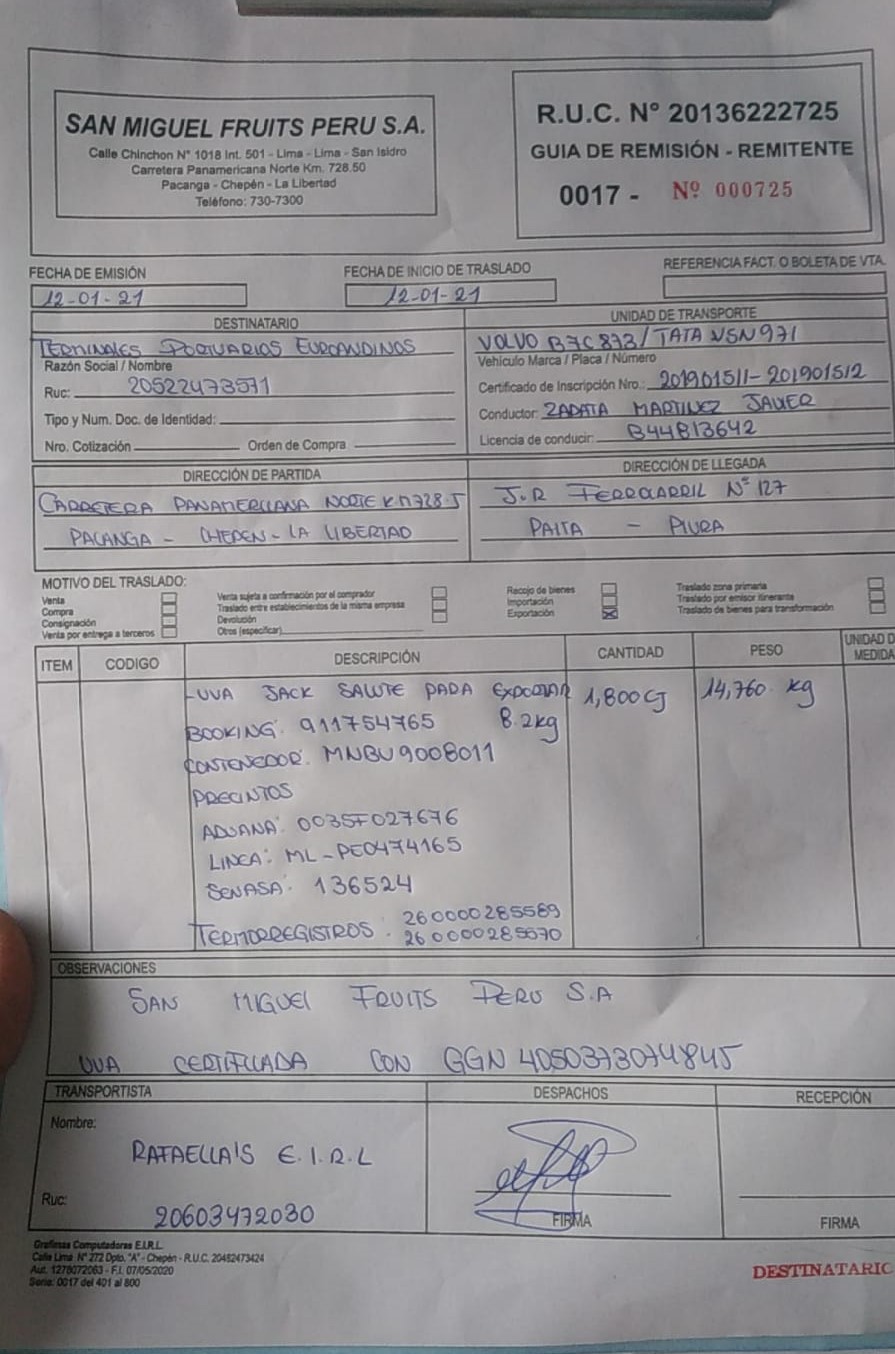 SAN MIGUEL FRUITS PERU S.A.
Calle Chinchon N° 1018 Int. 501 - Lima - Lima - San Isidro
Carretera Panamericana Norte Km. 728.50
Pacanga - Chepén - La Libertad
Teléfono: 730-7300
R.U.C. N° 20136222725
GUIA DE REMISIÓN - REMITENTE
0017 - Nº 000725
FECHA DE EMISIÓN
12-01-21
FECHA DE INICIO DE TRASLADO
12-01-21
REFERENCIA FACT. O BOLETA DE VTA.
DESTINATARIO
TERMINALES PORTUARIOS EUROANDINOS
Razón Social / Nombre
Ruc: 20522473571
Tipo y Num. Doc. de Identidad:
Nro. Cotización Orden de Compra
UNIDAD DE TRANSPORTE
VOLVO B7C 873 / TATA NSN 971
Vehículo Marca / Placa / Número
Certificado de Inscripción Nro.: 201901511-201901512
Conductor: ZAPATA MARTINEZ JAVIER
Licencia de conducir: B44813642
DIRECCIÓN DE PARTIDA
CARRETERA PANAMERICANA NORTE KM728.5
PACANGA - CHEPEN - LA LIBERTAD
DIRECCIÓN DE LLEGADA
J.R FERROCARRIL N° 127
PAITA - PIURA
MOTIVO DEL TRASLADO:
Venta
Compra
Consignación
Venta por entrega a terceros
Venta sujeta a confirmación por el comprador
Traslado entre establecimientos de la misma empresa
Devolución
Otros (especificar)
Recojo de bienes
Importación
Exportación
Traslado zona primaria
Traslado por emisor itinerante
Traslado de bienes para transformación
ITEM CODIGO DESCRIPCIÓN CANTIDAD PESO UNIDAD D
MEDIDA
-UVA JACK SALUTE PARA EXPORTAR 1,800 CJ 14,760 kg
BOOKING: 911754765 8.2kg
CONTENEDOR: MNBU9008011
PRECINTOS
ADUANA: 0035F027676
LINEA: ML-PE0474165
SENASA: 136524
TERMORREGISTROS: 260000285589
260000285570
OBSERVACIONES
SAN MIGUEL FRUITS PERU S.A
UVA CERTIFICADA CON GGN 4050373074845
TRANSPORTISTA
Nombre:
RAFAELLA'S E.I.R.L
Ruc:
20603472030
DESPACHOS
FIRMA
RECEPCIÓN
FIRMA
Grafimas Computadoras E.I.R.L.
Calle Lima N° 272 Dpto. "A" - Chepén - R.U.C. 20482473424
Aut. 1278072063 - F.I. 07/05/2020
Serie: 0017 del 401 al 800
DESTINATARIO